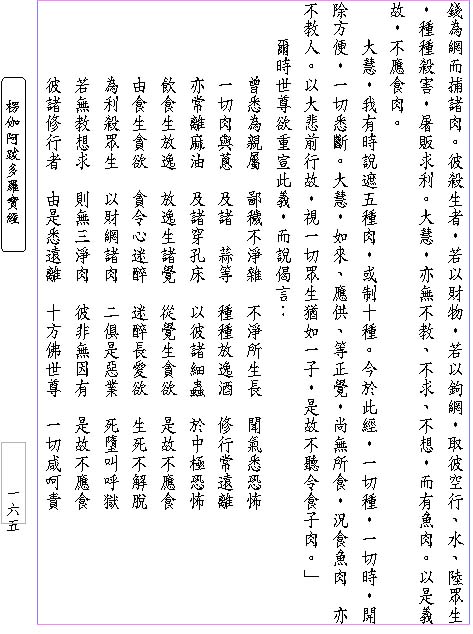 錢為網而捕諸肉。彼殺生者，若以財物，若以鉤網，取彼空行、水、陸眾生
，種種殺害，屠販求利。大慧，亦無不教、不求、不想，而有魚肉。以是義
故，不應食肉。
大慧，我有時說遮五種肉，或制十種。今於此經，一切種，一切時，開
除方便，一切悉斷。大慧，如來、應供、等正覺，尚無所食，況食魚肉 亦
不教人。以大悲前行故，視一切眾生猶如一子，是故不聽令食子肉。」
爾時世尊欲重宣此義，而說偈言：
曾悉為親屬 鄙穢不淨雜 不淨所生長 聞氣悉恐怖
一切肉與蔥 及諸 蒜等 種種放逸酒 修行常遠離
亦常離麻油 及諸穿孔床 以彼諸細蟲 於中極恐怖
飲食生放逸 放逸生諸覺 從覺生貪欲 是故不應食
由食生貪欲 貪令心迷醉 迷醉長愛欲 生死不解脫
為利殺眾生 以財網諸肉 二俱是惡業 死墮叫呼獄
若無教想求 則無三淨肉 彼非無因有 是故不應食
彼諸修行者 由是悉遠離 十方佛世尊 一切咸呵責
楞伽阿跋多羅寶經
一六五